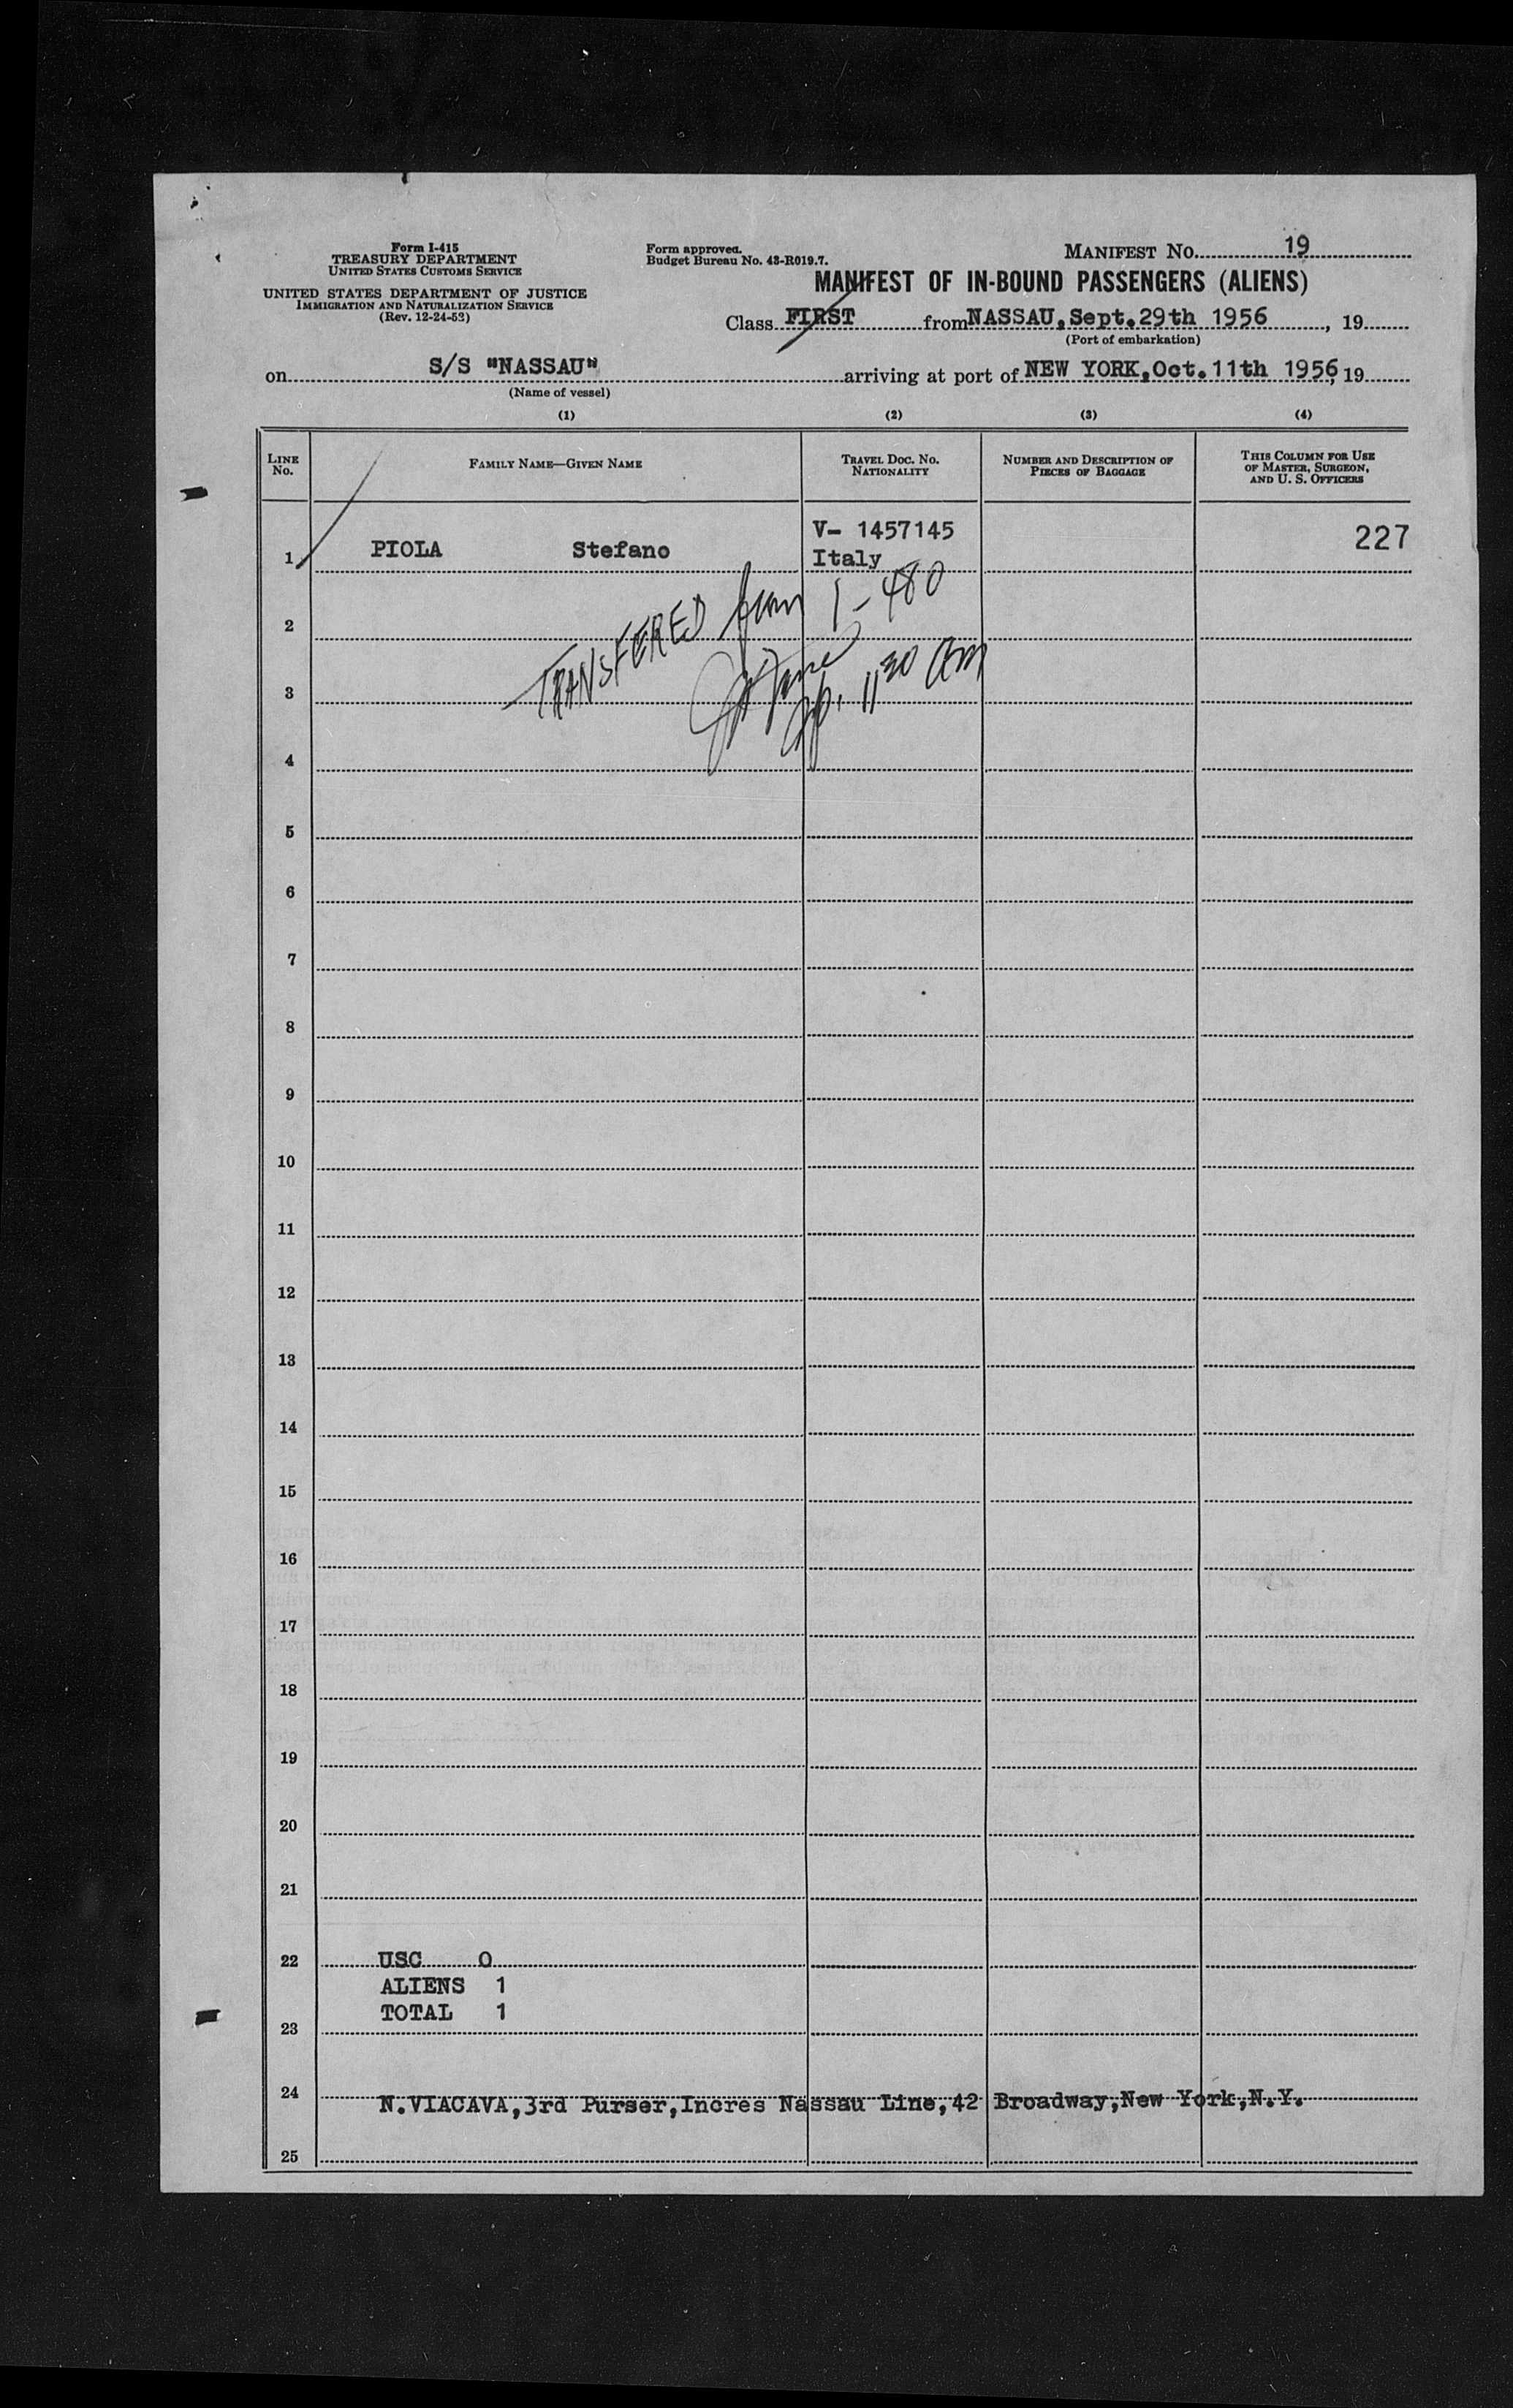 Form I-415
TREASURY DEPARTMENT
UNITED STATES CUSTOMS SERVICE
UNITED STATES DEPARTMENT OF JUSTICE
IMMIGRATION AND NATURALIZATION SERVICE
(Rev. 12-24-52)
Form approved.
Budget Bureau No. 43-R019.7.
MANIFEST No. 19
MANIFEST OF IN-BOUND PASSENGERS (ALIENS)
Class FIRST from NASSAU, Sept. 29th 1956, 19
(Port of embarkation)
on S/S "NASSAU" arriving at port of NEW YORK, Oct. 11th 1956, 19
(Name of vessel)
(1) (2) (3) (4)
LINE No. FAMILY NAME—GIVEN NAME TRAVEL DOC. No. NATIONALITY NUMBER AND DESCRIPTION OF PIECES OF BAGGAGE THIS COLUMN FOR USE OF MASTER, SURGEON, AND U. S. OFFICERS
1 PIOLA Stefano V- 1457145 Italy 227
TRANSFERED from I-480
2
11 30 am
3
4
5
6
7
8
9
10
11
12
13
14
15
16
17
18
19
20
21
22 USC 0
ALIENS 1
TOTAL 1
23
24
N.VIACAVA,3rd Purser,Incres Nassau Line,42 Broadway,New York,N.Y.
25